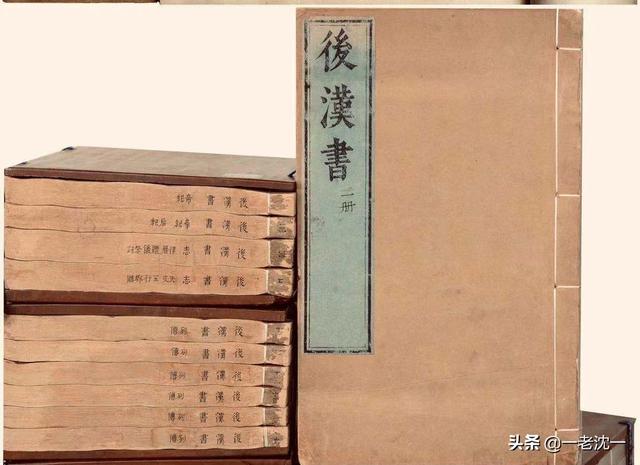 後漢書
二册
後漢書 帝紀
後漢書 帝紀 后紀
後漢書 志
後漢書 志 天文 五行
後漢書 列傳
後漢書 列傳
後漢書 列傳
後漢書 列傳
後漢書 列傳
後漢書 列傳
头条 @一老沈一